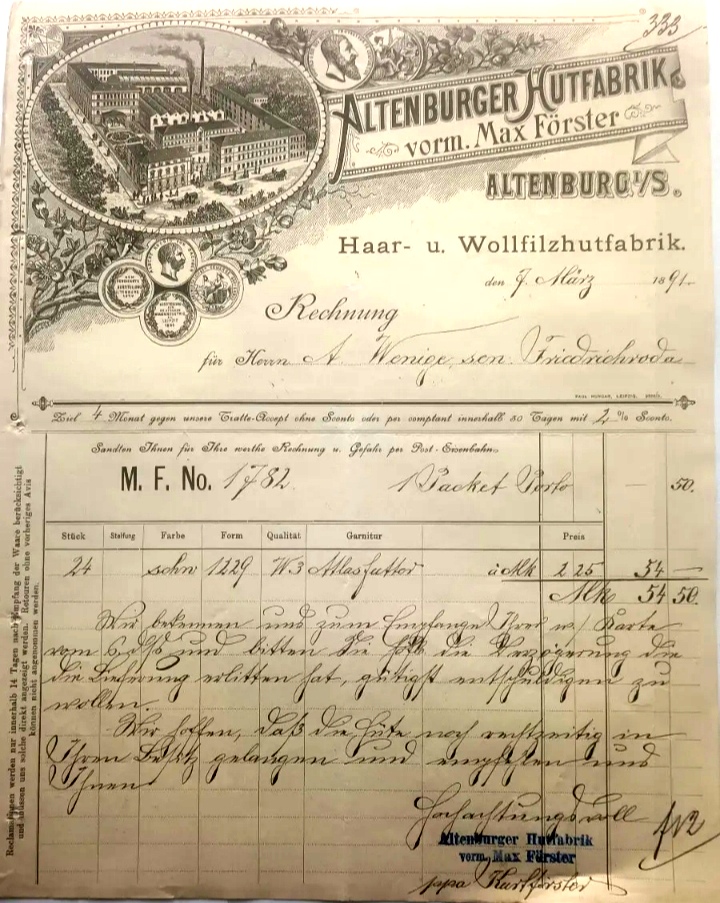 333
ALTENBURGER HUTFABRIK
vorm. Max Förster
ALTENBURG i/S.
Haar- u. Wollfilzhutfabrik.
den 7. März 1891.
Rechnung
für Herrn A. Wenige, sen. Friedrichroda
Ziel 4 Monat gegen unsere Tratte-Accept ohne Sconto oder per comptant innerhalb 30 Tagen mit 2 % Sconto.
Sandten Ihnen für Ihre werthe Rechnung u. Gefahr per Post - Eisenbahn
M. F. No. 1782. 1 Packet Porto — 50.
Stück Steifung Farbe Form Qualität Garnitur Preis
24 schw 1229 W3 Atlasfutter à Mk 2 25 54 —
Mk 54 50.
Wir bekennen uns zum Empfange Ihrer w. Karte
vom 6. dss und bitten Sie höfl. die Verzögerung die
die Lieferung erlitten hat, gütigst entschuldigen zu
wollen.
Wir hoffen, daß die Hüte noch rechtzeitig in
Ihren Besitz gelangen und empfehlen uns
Ihnen
Hochachtungsvoll
Altenburger Hutfabrik
vorm. Max Förster
ppa Kurt Förster
Reclamationen werden nur innerhalb 14 Tagen nach Empfang der Waare berücksichtigt
und müssen uns solche direkt angezeigt werden. Retouren ohne vorheriges Avis
können nicht angenommen werden.